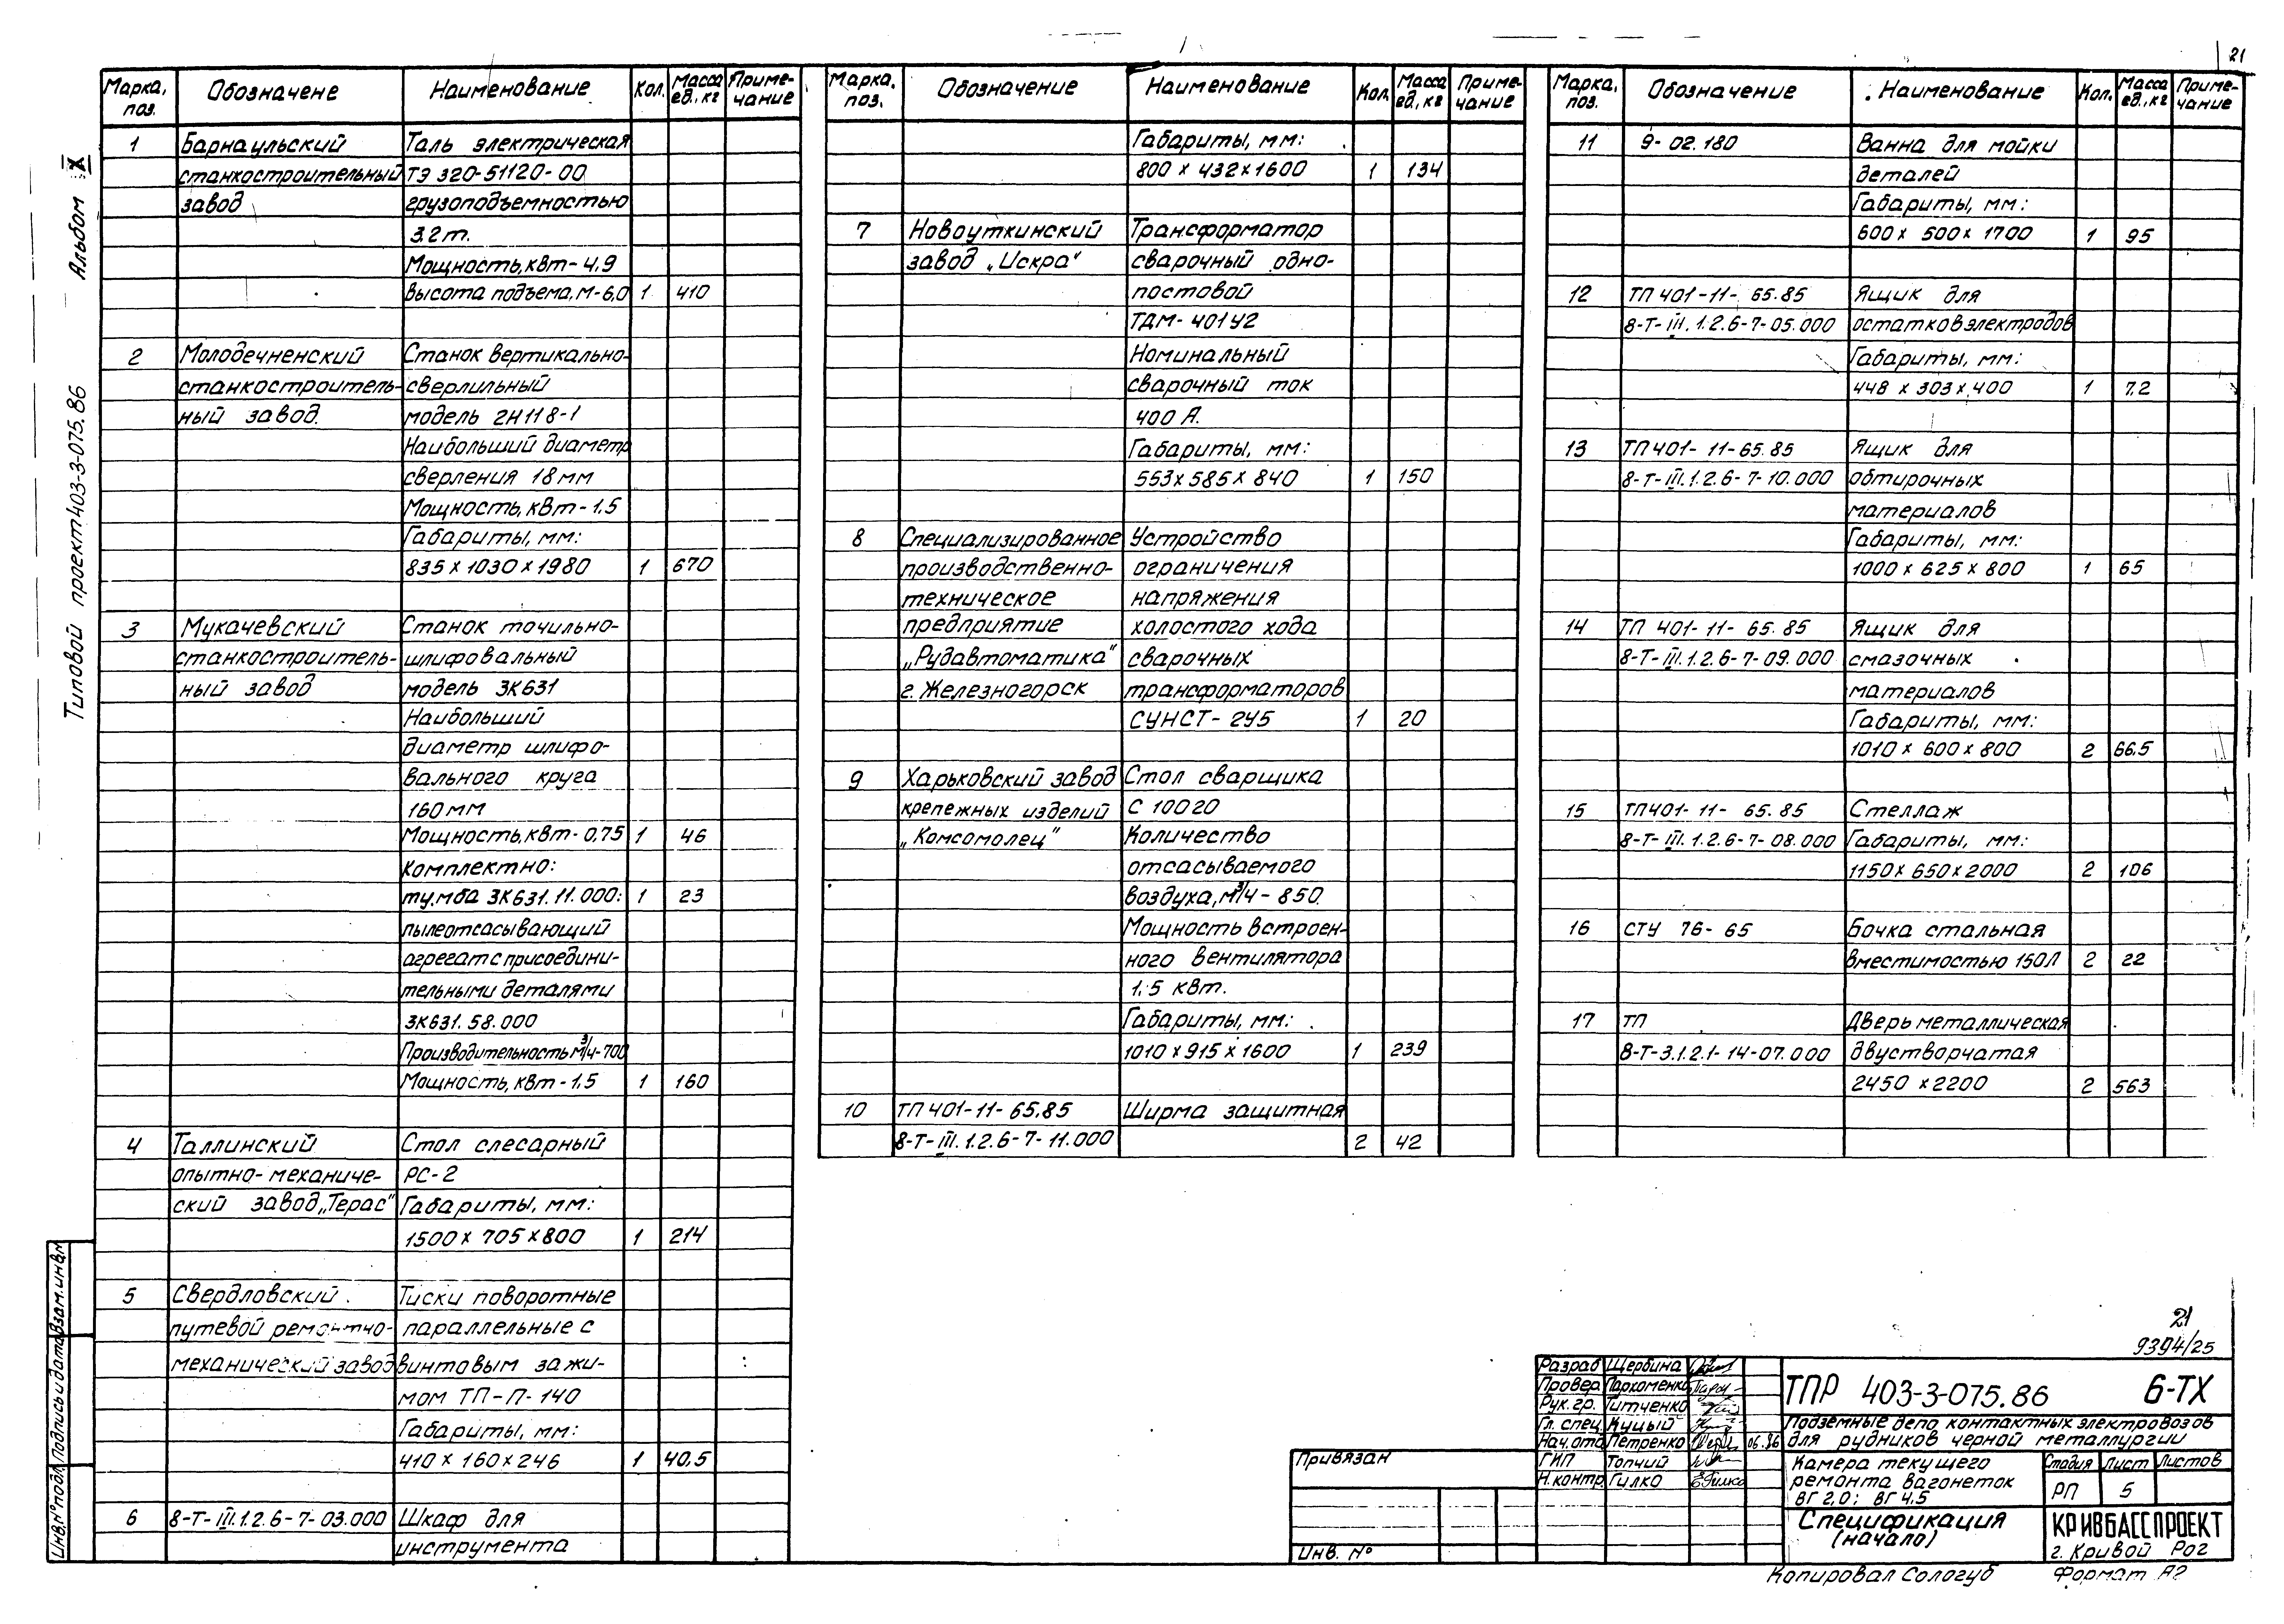 21
Типовой проект 403-3-075.86 Альбом X
Марка, поз. Обозначене Наименование Кол. Масса ед., кг Приме-чание
1 Барнаульский Таль электрическая
станкостроительный ТЭ 320-51120-00
завод грузоподъемностью
3.2т.
Мощность, квт-4,9
высота подъема, м-6,0 1 410
2 Молодечненский Станок вертикально-
станкостроитель- сверлильный
ный завод. модель 2Н118-1
Наибольший диаметр
сверления 18мм
Мощность, квт-1.5
Габариты, мм:
835х1030х1980 1 670
3 Мукачевский Станок точильно-
станкостроитель- шлифовальный
ный завод модель 3К631
Наибольший
диаметр шлифо-
вального круга
160мм
Мощность, квт-0,75 1 46
Комплектно:
тумба 3К631.11.000: 1 23
пылеотсасывающий
агрегат с присоедини-
тельными деталями
3К631.58.000
Производительность м³/ч-700
Мощность, квт-1,5 1 160
4 Таллинский Стол слесарный
опытно-механиче- РС-2
ский завод „Терас" Габариты, мм:
1500х705х800 1 214
5 Свердловский Тиски поворотные
путевой ремонтно- параллельные с
механический завод винтовым зажи-
мом ТП-П-140
Габариты, мм:
410х160х246 1 40,5
6 8-Т-III.1.2.6-7-03.000 Шкаф для
инструмента
Марка, поз. Обозначение Наименование Кол. Масса ед., кг Приме-чание
Габариты, мм:
800х432х1600 1 134
7 Новоуткинский Трансформатор
завод „Искра" сварочный одно-
постовой
ТДМ-401У2
Номинальный
сварочный ток
400 А.
Габариты, мм:
553х585х840 1 150
8 Специализированное Устройство
производственно- ограничения
техническое напряжения
предприятие холостого хода
„Рудавтоматика" сварочных
г. Железногорск трансформаторов
СУНСТ-2У5 1 20
9 Харьковский завод Стол сварщика
крепежных изделий С 10020
„Комсомолец" Количество
отсасываемого
воздуха, м³/ч-850.
Мощность встроен-
ного вентилятора
1.5 квт.
Габариты, мм:
1010х915х1600 1 239
10 ТП 401-11-65.85 Ширма защитная
8-Т-III.1.2.6-7-11.000 2 42
Марка, поз. Обозначение Наименование Кол. Масса ед., кг Приме-чание
11 9-02.180 Ванна для мойки
деталей
Габариты, мм:
600х 500х 1700 1 95
12 ТП 401-11-65.85 Ящик для
8-Т-III.1.2.6-7-05.000 остатков электродов
Габариты, мм:
448 х 303х 400 1 7,2
13 ТП 401-11-65.85 Ящик для
8-Т-III.1.2.6-7-10.000 обтирочных
материалов
Габариты, мм:
1000х625х800 1 65
14 ТП 401-11-65.85 Ящик для
8-Т-III.1.2.6-7-09.000 смазочных
материалов
Габариты, мм:
1010х600х800 2 66.5
15 ТП 401-11-65.85 Стеллаж
8-Т-III.1.2.6-7-08.000 Габариты, мм:
1150х650х2000 2 106
16 СТУ 76-65 Бочка стальная
вместимостью 150л 2 22
17 ТП Дверь металлическая
8-Т-3.1.2.1-14-07.000 двустворчатая
2450х2200 2 563
21
9394/25
Инв.№ подл. Подпись и дата Взам.инв.№
Привязан
Инв. №
Разраб Щербина
Провер. Пархоменко
Рук. гр. Титченко
Гл. спец. Куцый
Нач. отд Петренко 06.86
ГИП Топчий
Н.контр. Гилко
ТПР 403-3-075.86 6-ТХ
Подземные депо контактных электровозов
для рудников черной металлургии
Камера текущего
ремонта вагонеток
ВГ 2,0; ВГ 4,5
Стадия Лист Листов
РП 5
Спецификация
(начало)
КРИВБАССПРОЕКТ
г. Кривой Рог
Копировал Сологуб Формат А2